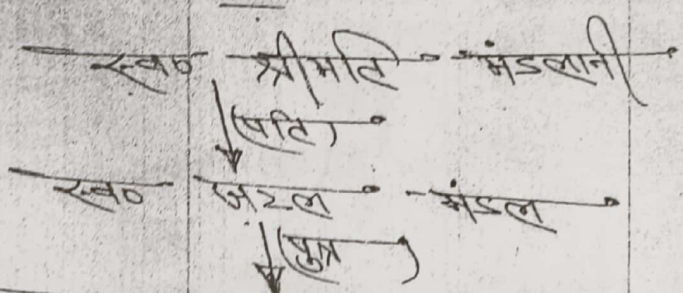 स्व० श्रीमति मंडलानी
(पति)
स्व० जटल मंडल
(पुत्र)